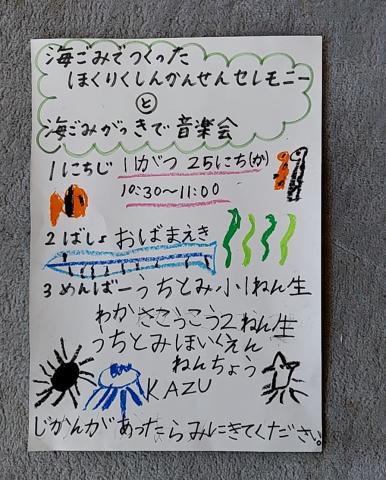 海ごみでつくった
ほくりくしんかんせんセレモニー
と
海ごみがっきで音楽会
1 にちじ 11がつ 25にち(か)
10:30～11:00
2 ばしょ おばまえき
3 めんばー うちとみ小1ねん生
わかさこうこう2ねん生
うちとみほいくえん
ねんちょう
KAZU
じかんがあったらみにきてください。